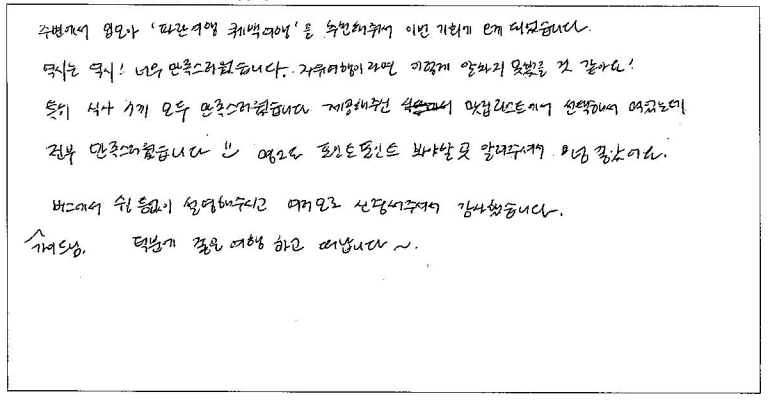 주변에서 입모아 '파란여행 퀘백여행'을 추천해줘서 이번 기회에 오게 되었습니다.
역시는 역시! 너무 만족스러웠습니다. 자유여행이라면 이렇게 알차지 못했을 것 같아요!
특히 식사 3끼 모두 만족스러웠습니다 제공해주신 맛집리스트에서 선택해서 먹었는데
전부 만족스러웠습니다 영고도 포인트포인트 봐야할곳 알려주셔서 너무 좋았어요.
버스에서 쉼 틈없이 설명해주시고 여러모로 신경써주셔서 감사했습니다.
가이드님, 덕분에 좋은 여행 하고 떠납니다~.